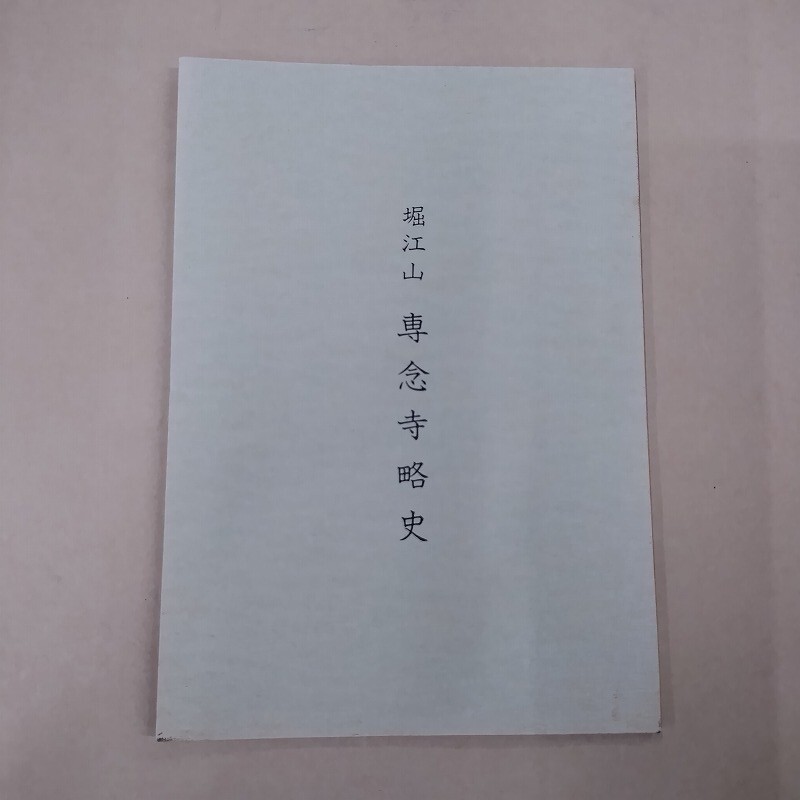 堀江山 専念寺略史